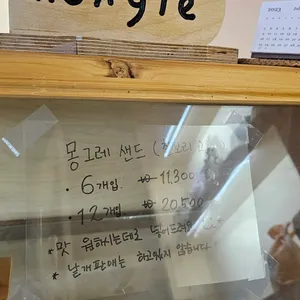 몽그레 샌드
· 6개입 → 11,300
· 12개입 → 20,500
* 맛 원하시는데로 넣어드려요
* 낱개판매는 하고있지 않습니다.